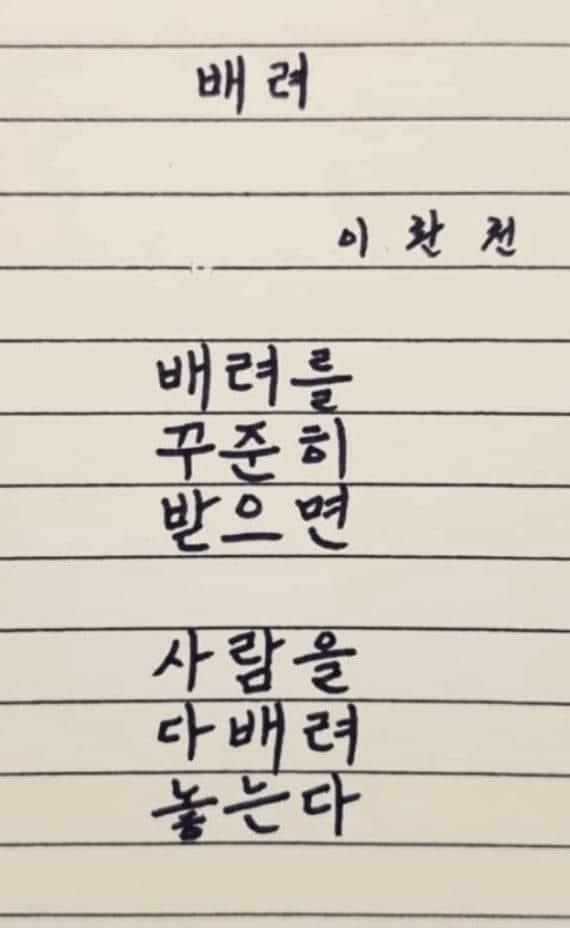 배려
이 환 천
배려를
꾸준히
받으면
사람을
다배려
놓는다